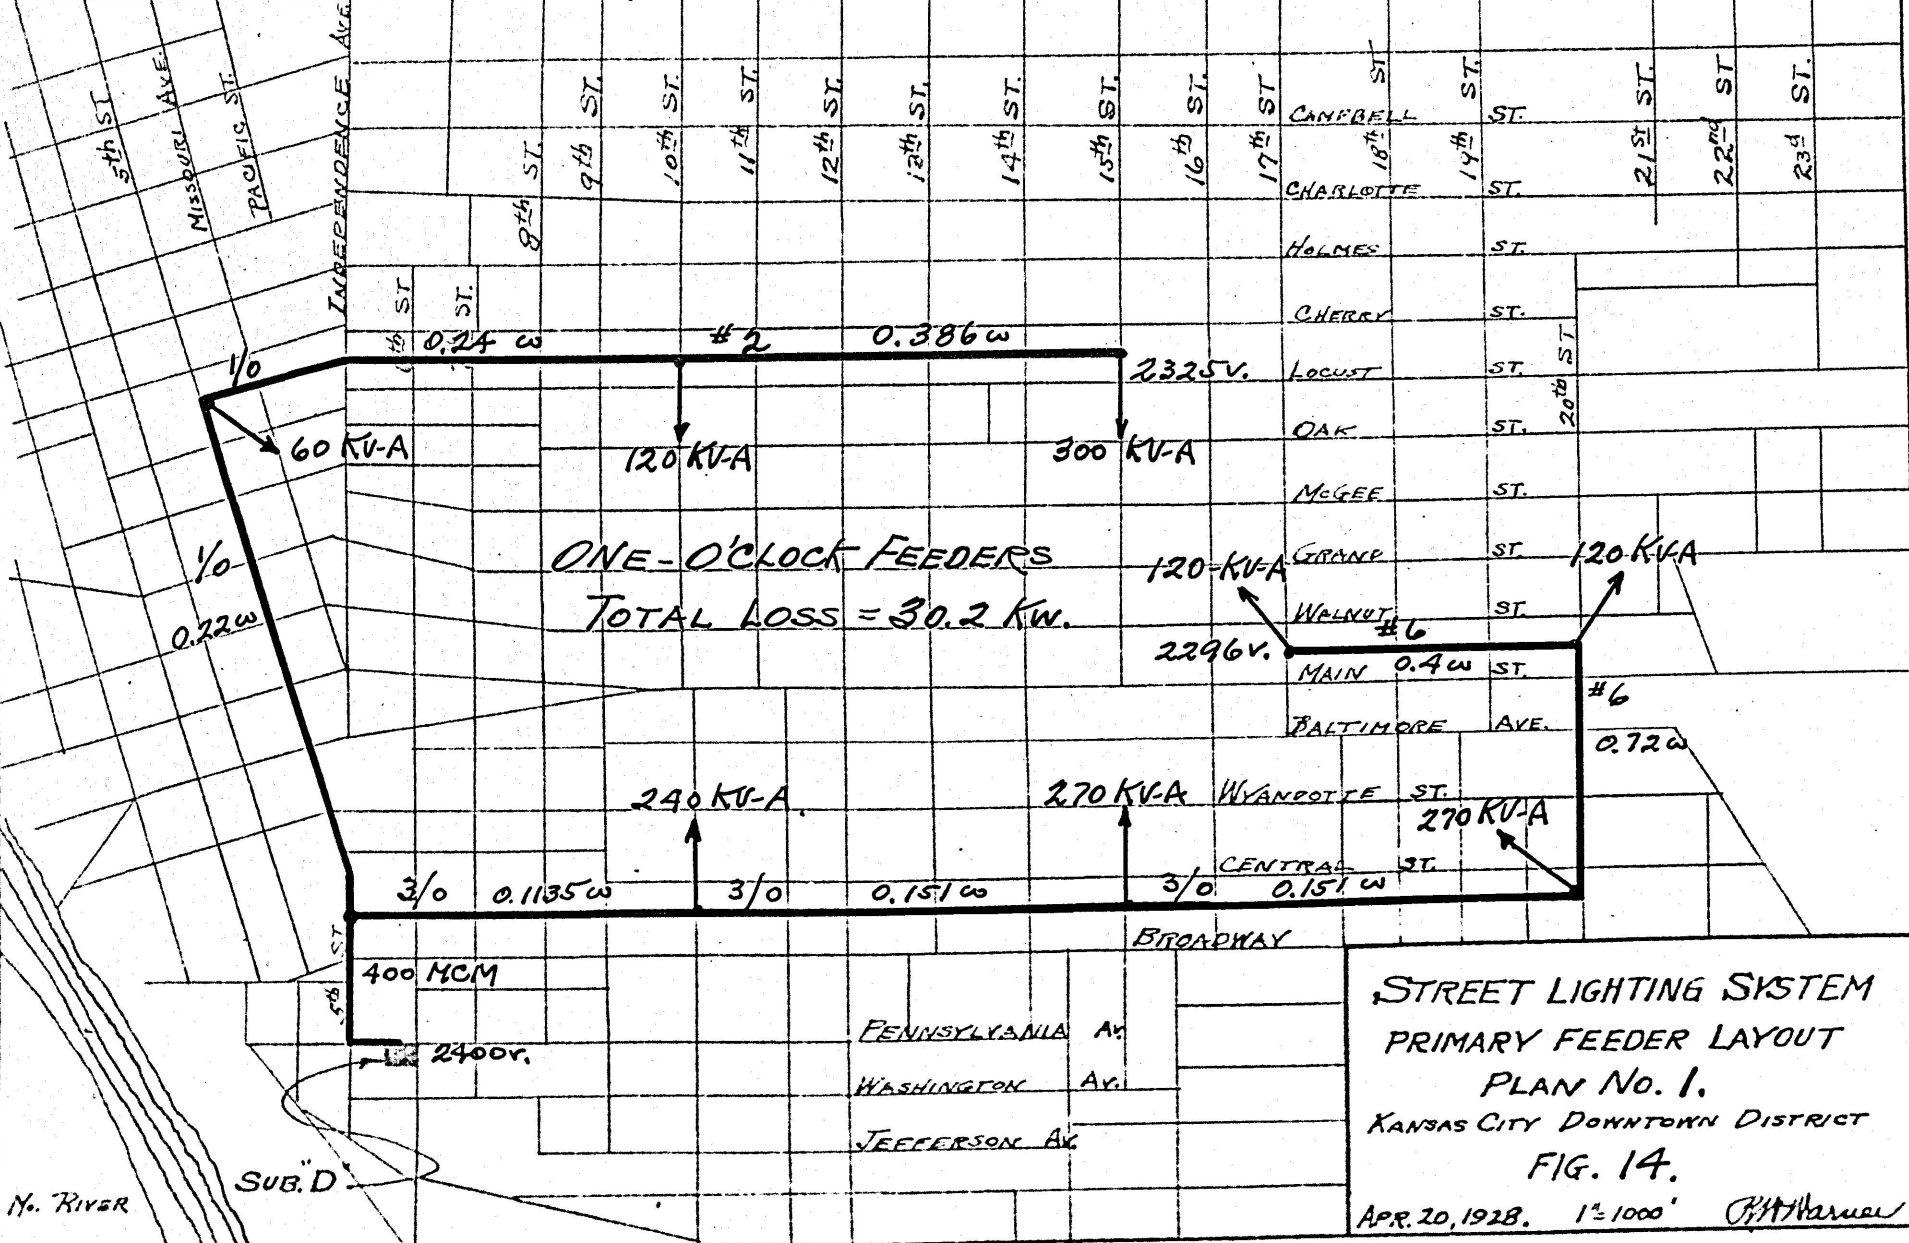 5th ST.
MISSOURI AVE.
PACIFIC ST.
INDEPENDENCE AVE
ST
ST.
8th ST.
9th ST.
10th ST.
11th ST.
12th ST.
13th ST.
14th ST.
15th ST.
16th ST.
17th ST
18th ST
19th ST.
20th ST
21st ST.
22nd ST
23d ST.
CAMPBELL ST.
CHARLOTTE ST.
HOLMES ST.
CHERRY ST.
LOCUST ST.
OAK ST.
McGEE ST.
GRAND ST
WALNUT ST.
MAIN ST.
BALTIMORE AVE.
WYANDOTTE ST.
CENTRAL ST.
BROADWAY
PENNSYLVANIA Av.
WASHINGTON Av.
JEFFERSON Av.
1/0
0.24 ω
#2
0.386 ω
2325V.
60 KV-A
120 KV-A
300 KV-A
1/0
0.22 ω
ONE-O'CLOCK FEEDERS
TOTAL LOSS = 30.2 KW.
120-KV-A
120 KV-A
2296V.
#6
0.4 ω
#6
0.72 ω
240 KV-A
270 KV-A
270 KV-A
3/0
0.1135 ω
3/0
0.151 ω
3/0
0.151 ω
5th ST
400 MCM
2400V.
SUB."D"
Mo. RIVER
STREET LIGHTING SYSTEM
PRIMARY FEEDER LAYOUT
PLAN No. 1.
KANSAS CITY DOWNTOWN DISTRICT
FIG. 14.
APR. 20, 1928. 1"=1000'